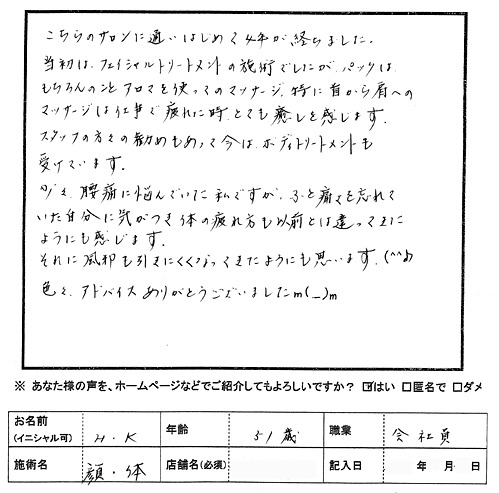 こちらのサロンに通いはじめて4年が経ちました。
当初は、フェイシャルトリートメントの施術でしたが、パックは
もちろんのことアロマを使ってのマッサージ、特に首から肩への
マッサージは仕事で疲れた時、とても癒しを感じます。
スタッフの方々の勧めもあって今は、ボディトリートメントも
受けています。
少々、腰痛に悩んでいた私ですが、ふと痛みを忘れて
いた自分に気がつき体の疲れ方も以前とは違ってきた
ようにも感じます。
それに風邪も引きにくくなってきたようにも思います。(^^♪
色々、アドバイスありがとうございましたm(_)m
※ あなた様の声を、ホームページなどでご紹介してもよろしいですか? ☑はい □匿名で □ダメ
お名前(イニシャル可) H・K 年齢 51歳 職業 会社員
施術名 顔・体 店舗名(必須) 記入日 年 月 日